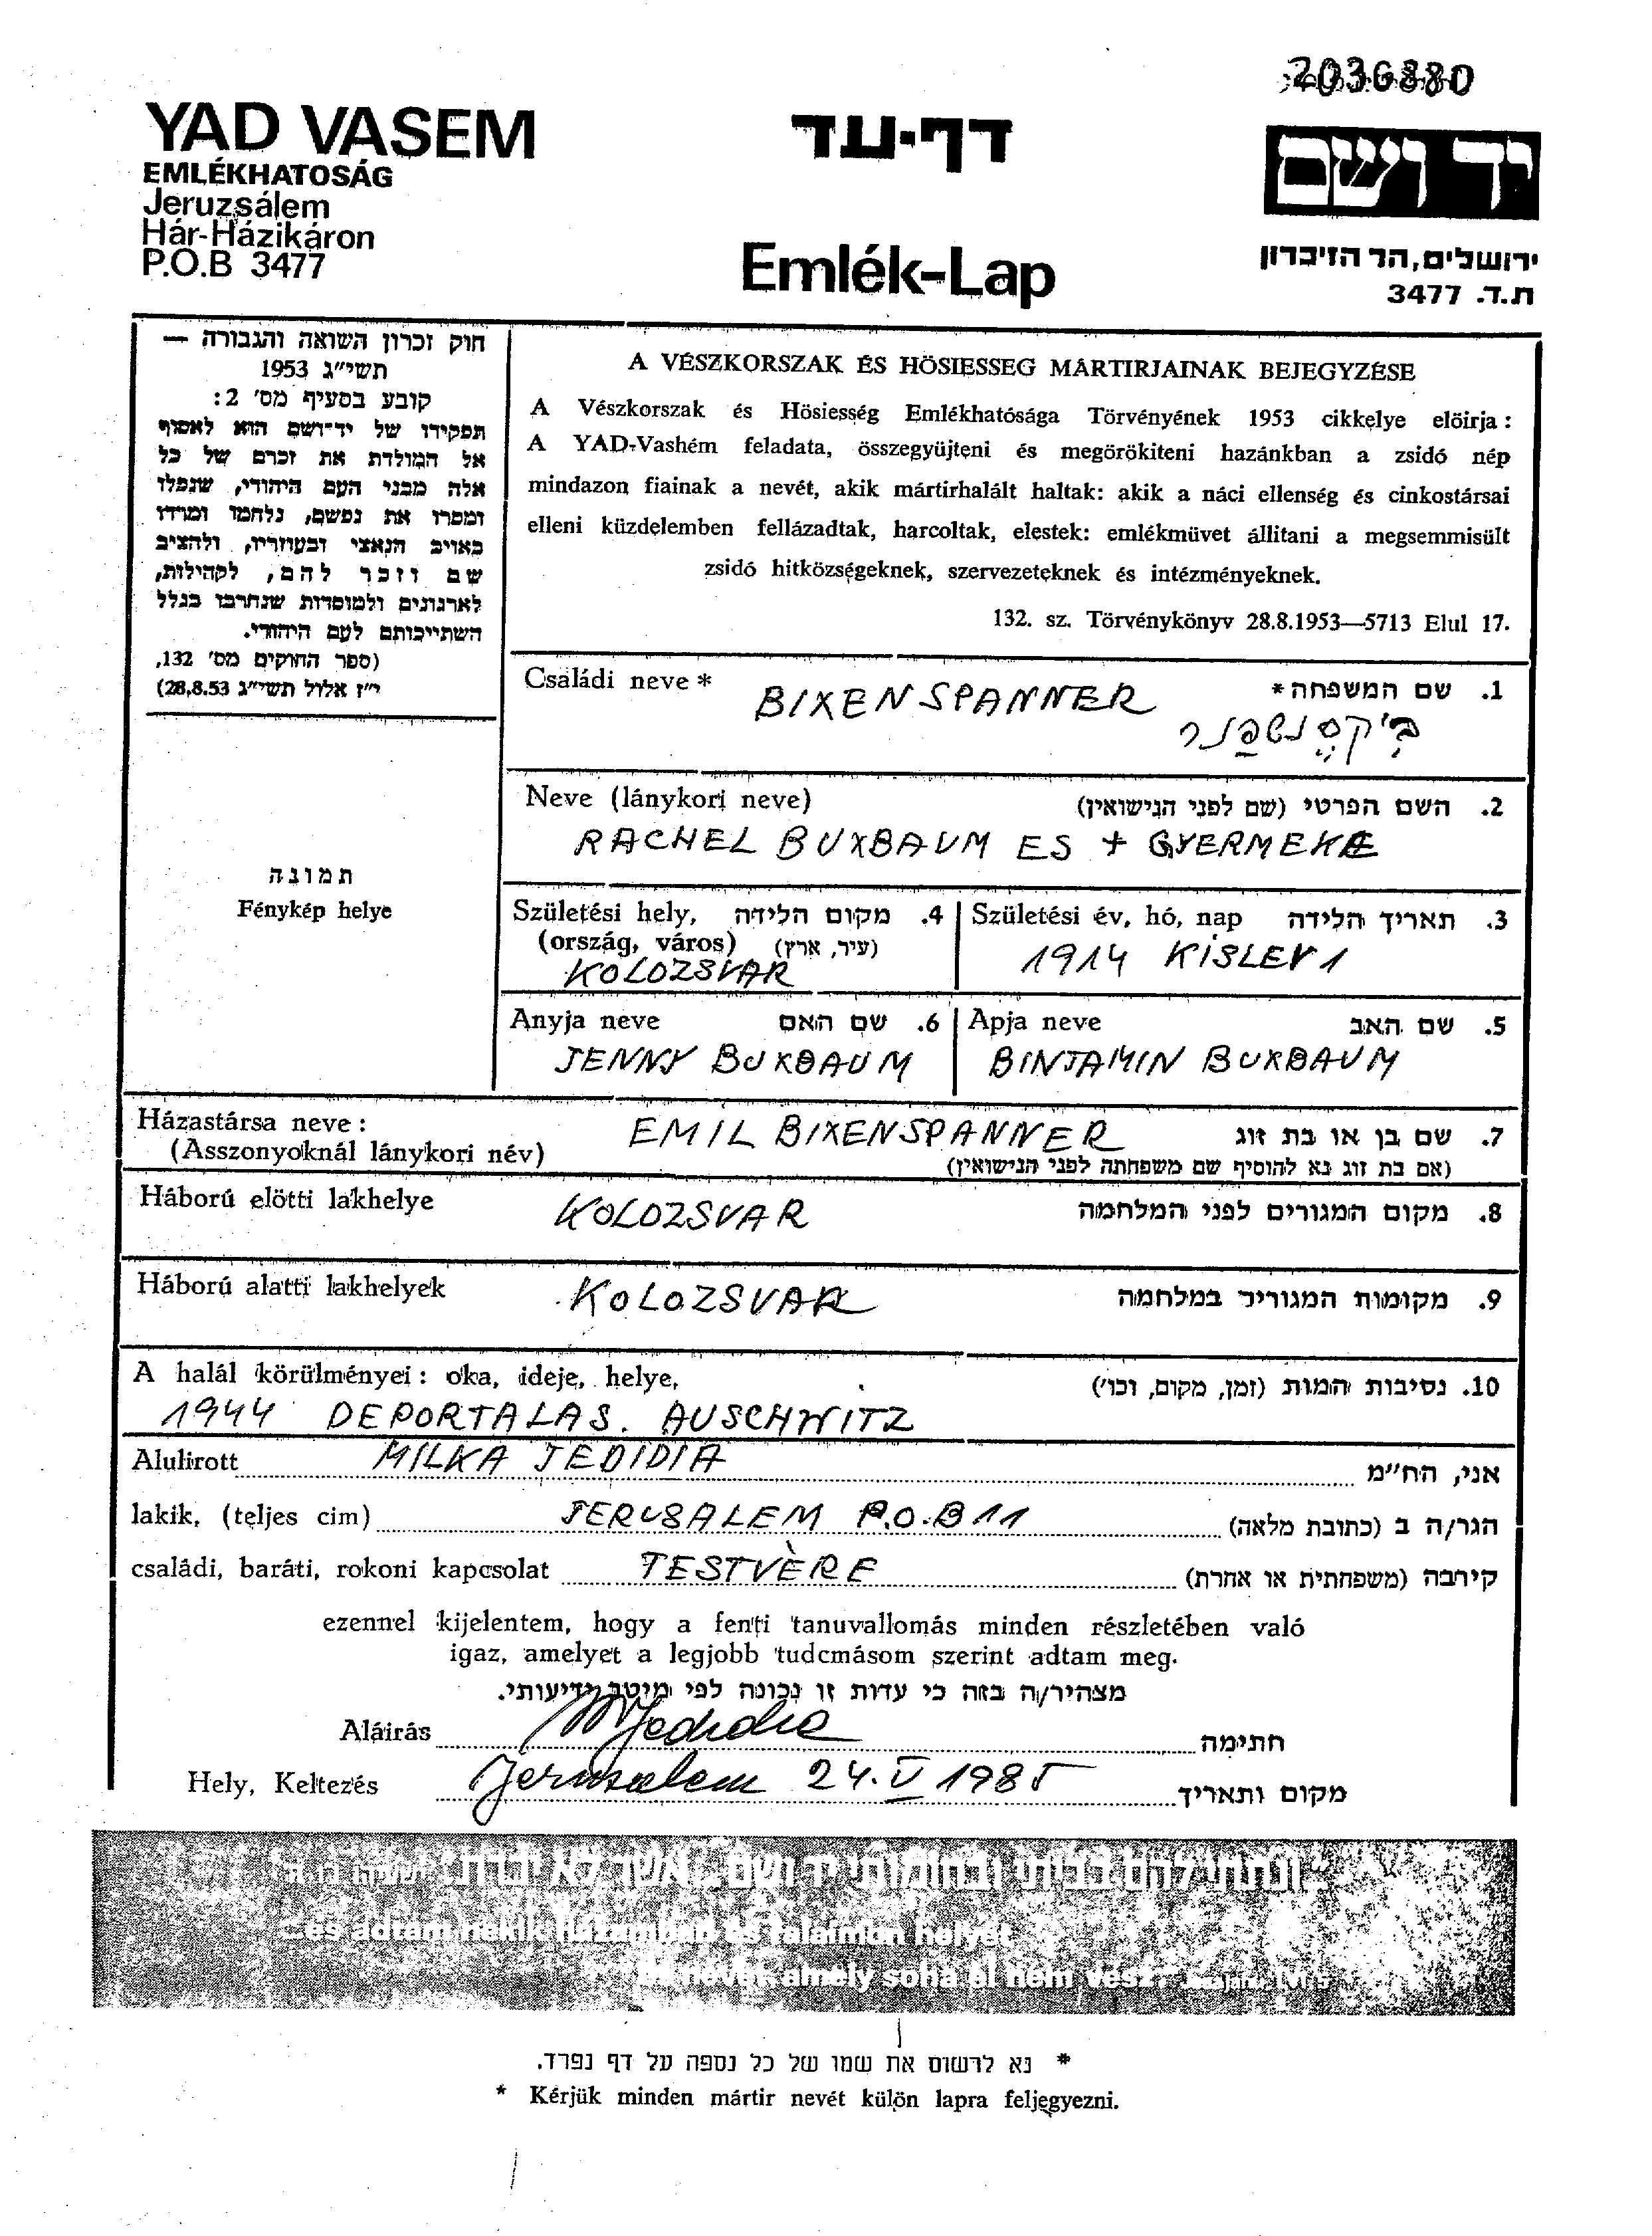 2036880
YAD VASEM
EMLÉKHATOSÁG
Jeruzsálem
Hár-Házikáron
P.O.B 3477
דף-עד
Emlék-Lap
יד ושם
ירושלים, הר הזיכרון
ת.ד. 3477
חוק זכרון השואה והגבורה —
תשי״ג 1953
קובע בסעיף מס׳ 2:
תפקידו של יד־ושם הוא לאסוף
אל המולדת את זכרם של כל
אלה מבני העם היהודי, שנפלו
ומסרו את נפשם, נלחמו ומרדו
באויב הנאצי ובעוזריו, ולהציב
שם וזכר להם, לקהילות,
לארגונים ולמוסדות שנחרבו בגלל
השתייכותם לעם היהודי.
(ספר החוקים מס׳ 132,
י״ז אלול תשי״ג 28.8.53)
תמונה
Fénykép helye
A VÉSZKORSZAK ÉS HÖSIESSEG MÁRTIRJAINAK BEJEGYZÉSE
A Vészkorszak és Hösiesség Emlékhatósága Törvényének 1953 cikkelye elöirja:
A YAD-Vashém feladata, összegyüjteni és megörökiteni hazánkban a zsidó nép
mindazon fiainak a nevét, akik mártirhalált haltak: akik a náci ellenség és cinkostársai
elleni küzdelemben fellázadtak, harcoltak, elestek: emlékmüvet állitani a megsemmisült
zsidó hitközségeknek, szervezeteknek és intézményeknek.
132. sz. Törvénykönyv 28.8.1953—5713 Elul 17.
Családi neve * BIXENSPANNER 1. שם המשפחה*
בִּיקְסֶנְשְפַּנר
Neve (lánykori neve) 2. השם הפרטי (שם לפני הנישואין)
RACHEL BUXBAUM ES + GYERMEKE
Születési hely, 4. מקום הלידה
(ország, város) (עיר, ארץ)
KOLOZSVAR
Születési év, hó, nap 3. תאריך הלידה
1914 KISLEV 1
Anyja neve 6. שם האם
JENNY BUXBAUM
Apja neve 5. שם האב
BINJAMIN BUXBAUM
Házastársa neve: EMIL BIXENSPANNER 7. שם בן או בת זוג
(Asszonyoknál lánykori név) (אם בת זוג נא להוסיף שם משפחתה לפני הנישואין)
Háború elötti lakhelye KOLOZSVAR 8. מקום המגורים לפני המלחמה
Háború alatti lakhelyek KOLOZSVAR 9. מקומות המגוריד במלחמה
A halál körülményei: oka, ideje, helye, 10. נסיבות המות (זמן, מקום, וכו׳)
1944 DEPORTALAS. AUSCHWITZ
Alulirott MILKA JEDIDIA אני, הח״מ
lakik, (teljes cim) JERUSALEM P.O.B 11 הגר/ה ב (כתובת מלאה)
családi, baráti, rokoni kapcsolat TESTVÈRE קירבה (משפחתית או אחרת)
ezennel kijelentem, hogy a fenti tanuvallomás minden részletében való
igaz, amelyet a legjobb tudcmásom szerint adtam meg.
מצהיר/ה בזה כי עדות זו נכונה לפי מיטב ידיעותי.
Aláirás MJedidia חתימה
Hely, Keltezés Jerusalem 24.V 1985 מקום ותאריך
ונתתי להם בביתי ובחומותי יד ושם... אשר לא יכרת
...és adtam nekik házamban és falaimon helyet
és nevet, amely soha el nem vész."
* נא לרשום את שמו של כל נספה על דף נפרד.
* Kérjük minden mártir nevét külön lapra feljegyezni.